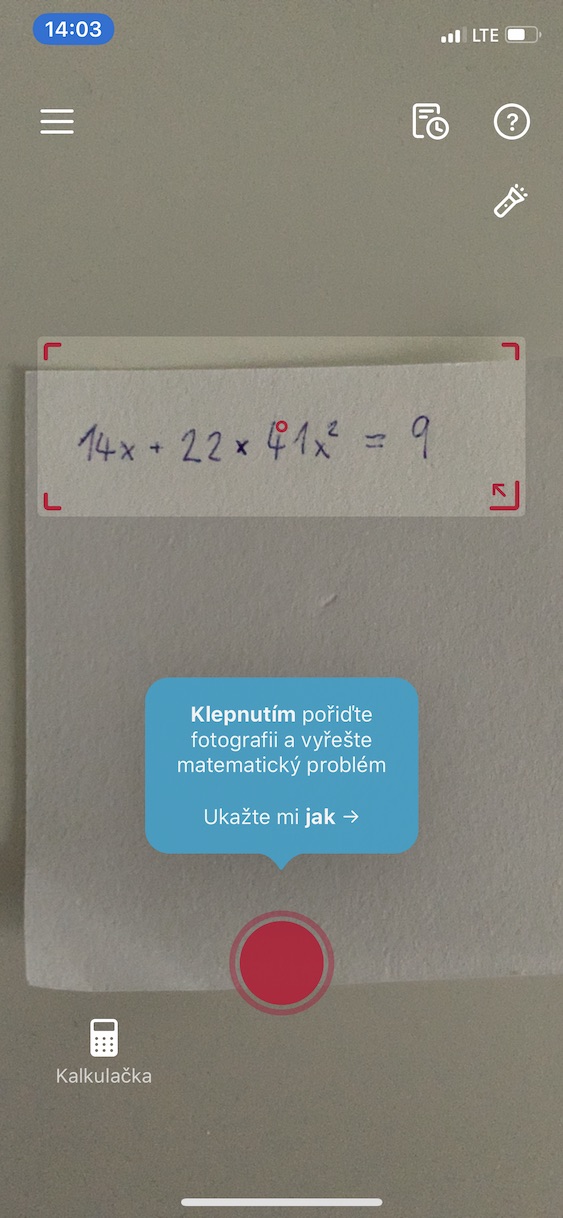 14:03
LTE
?
14x + 22 × 41x² = 9
Klepnutím pořiďte
fotografii a vyřešte
matematický problém
Ukažte mi jak →
Kalkulačka